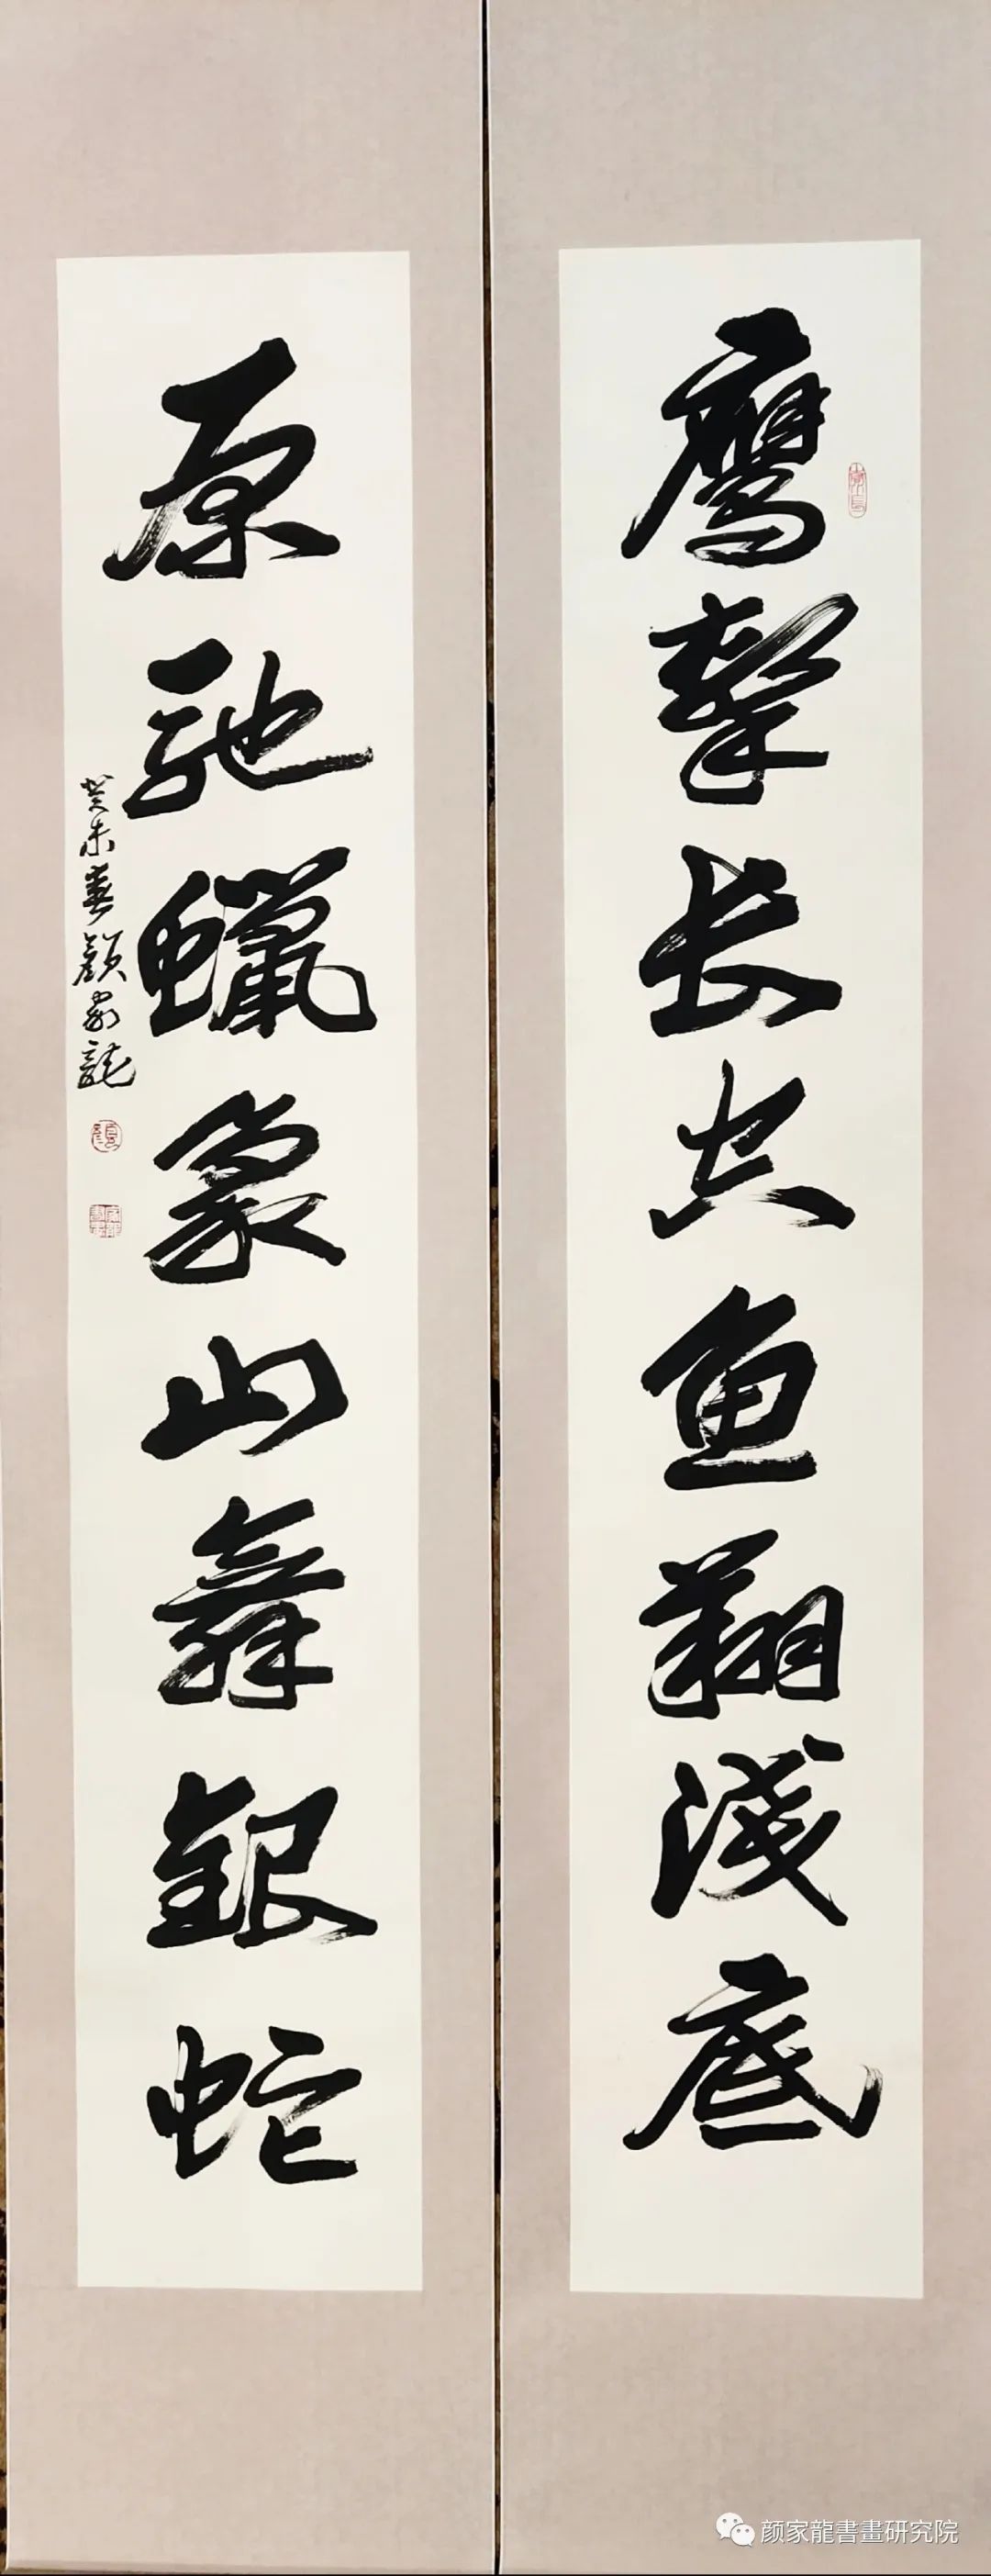 鹰擊长空鱼翔浅底
原驰蠟象山舞銀蛇
癸未春顏家龍
颜家龍書畫研究院